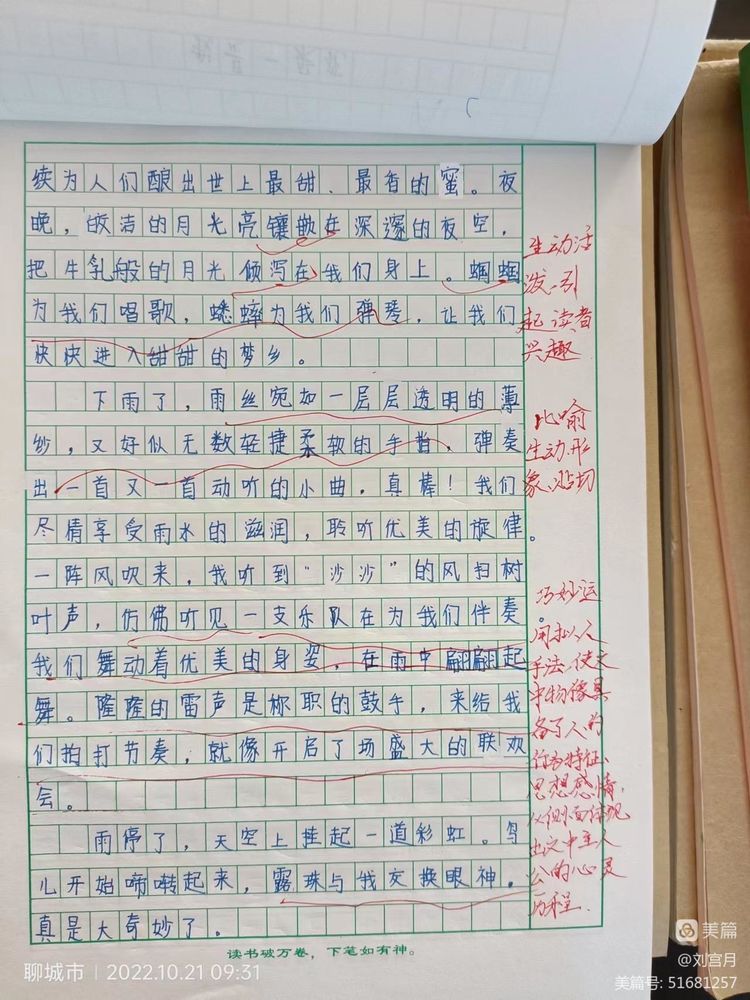 续为人们酿出世上最甜、最香的蜜。夜
晚，皎洁的月光亮镶嵌在深邃的夜空，
把牛乳般的月光倾泻在我们身上。蝈蝈
为我们唱歌，蟋蟀为我们弹琴，让我们
快快进入甜甜的梦乡。
下雨了，雨丝宛如一层层透明的薄
纱，又好似无数轻捷柔软的手指，弹奏
出一首又一首动听的小曲，真棒！我们
尽情享受雨水的滋润，聆听优美的旋律。
一阵风吹来，我听到“沙沙”的风扫树
叶声，仿佛听见一支乐队在为我们伴奏。
我们舞动着优美的身姿，在雨中翩翩起
舞。隆隆的雷声是称职的鼓手，来给我
们拍打节奏，就像开启了场盛大的联欢
会。
雨停了，天空上挂起一道彩虹。鸟
儿开始啼啭起来，露珠与我交换眼神。
真是大奇妙了。
生动活
泼，引
起读者
兴趣
比喻
生动、形
象、贴切
巧妙运
用拟人
手法，使文
中物像具
备了人的
行为特征、
思想感情，
从侧面体现
出文中主人
公的心灵
历程
读书破万卷，下笔如有神。
聊城市 | 2022.10.21 09:31
美篇
@刘宫月
美篇号：51681257